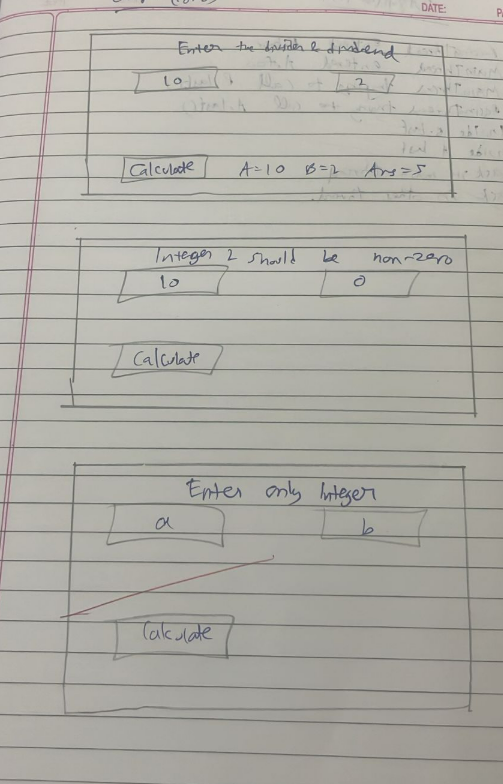 DATE:
Enter the divider & dividend
10 2
Calculate A=10 B=2 Ans=5
Integer 2 should be non-zero
10 0
Calculate
Enter only Integer
a b
Calculate